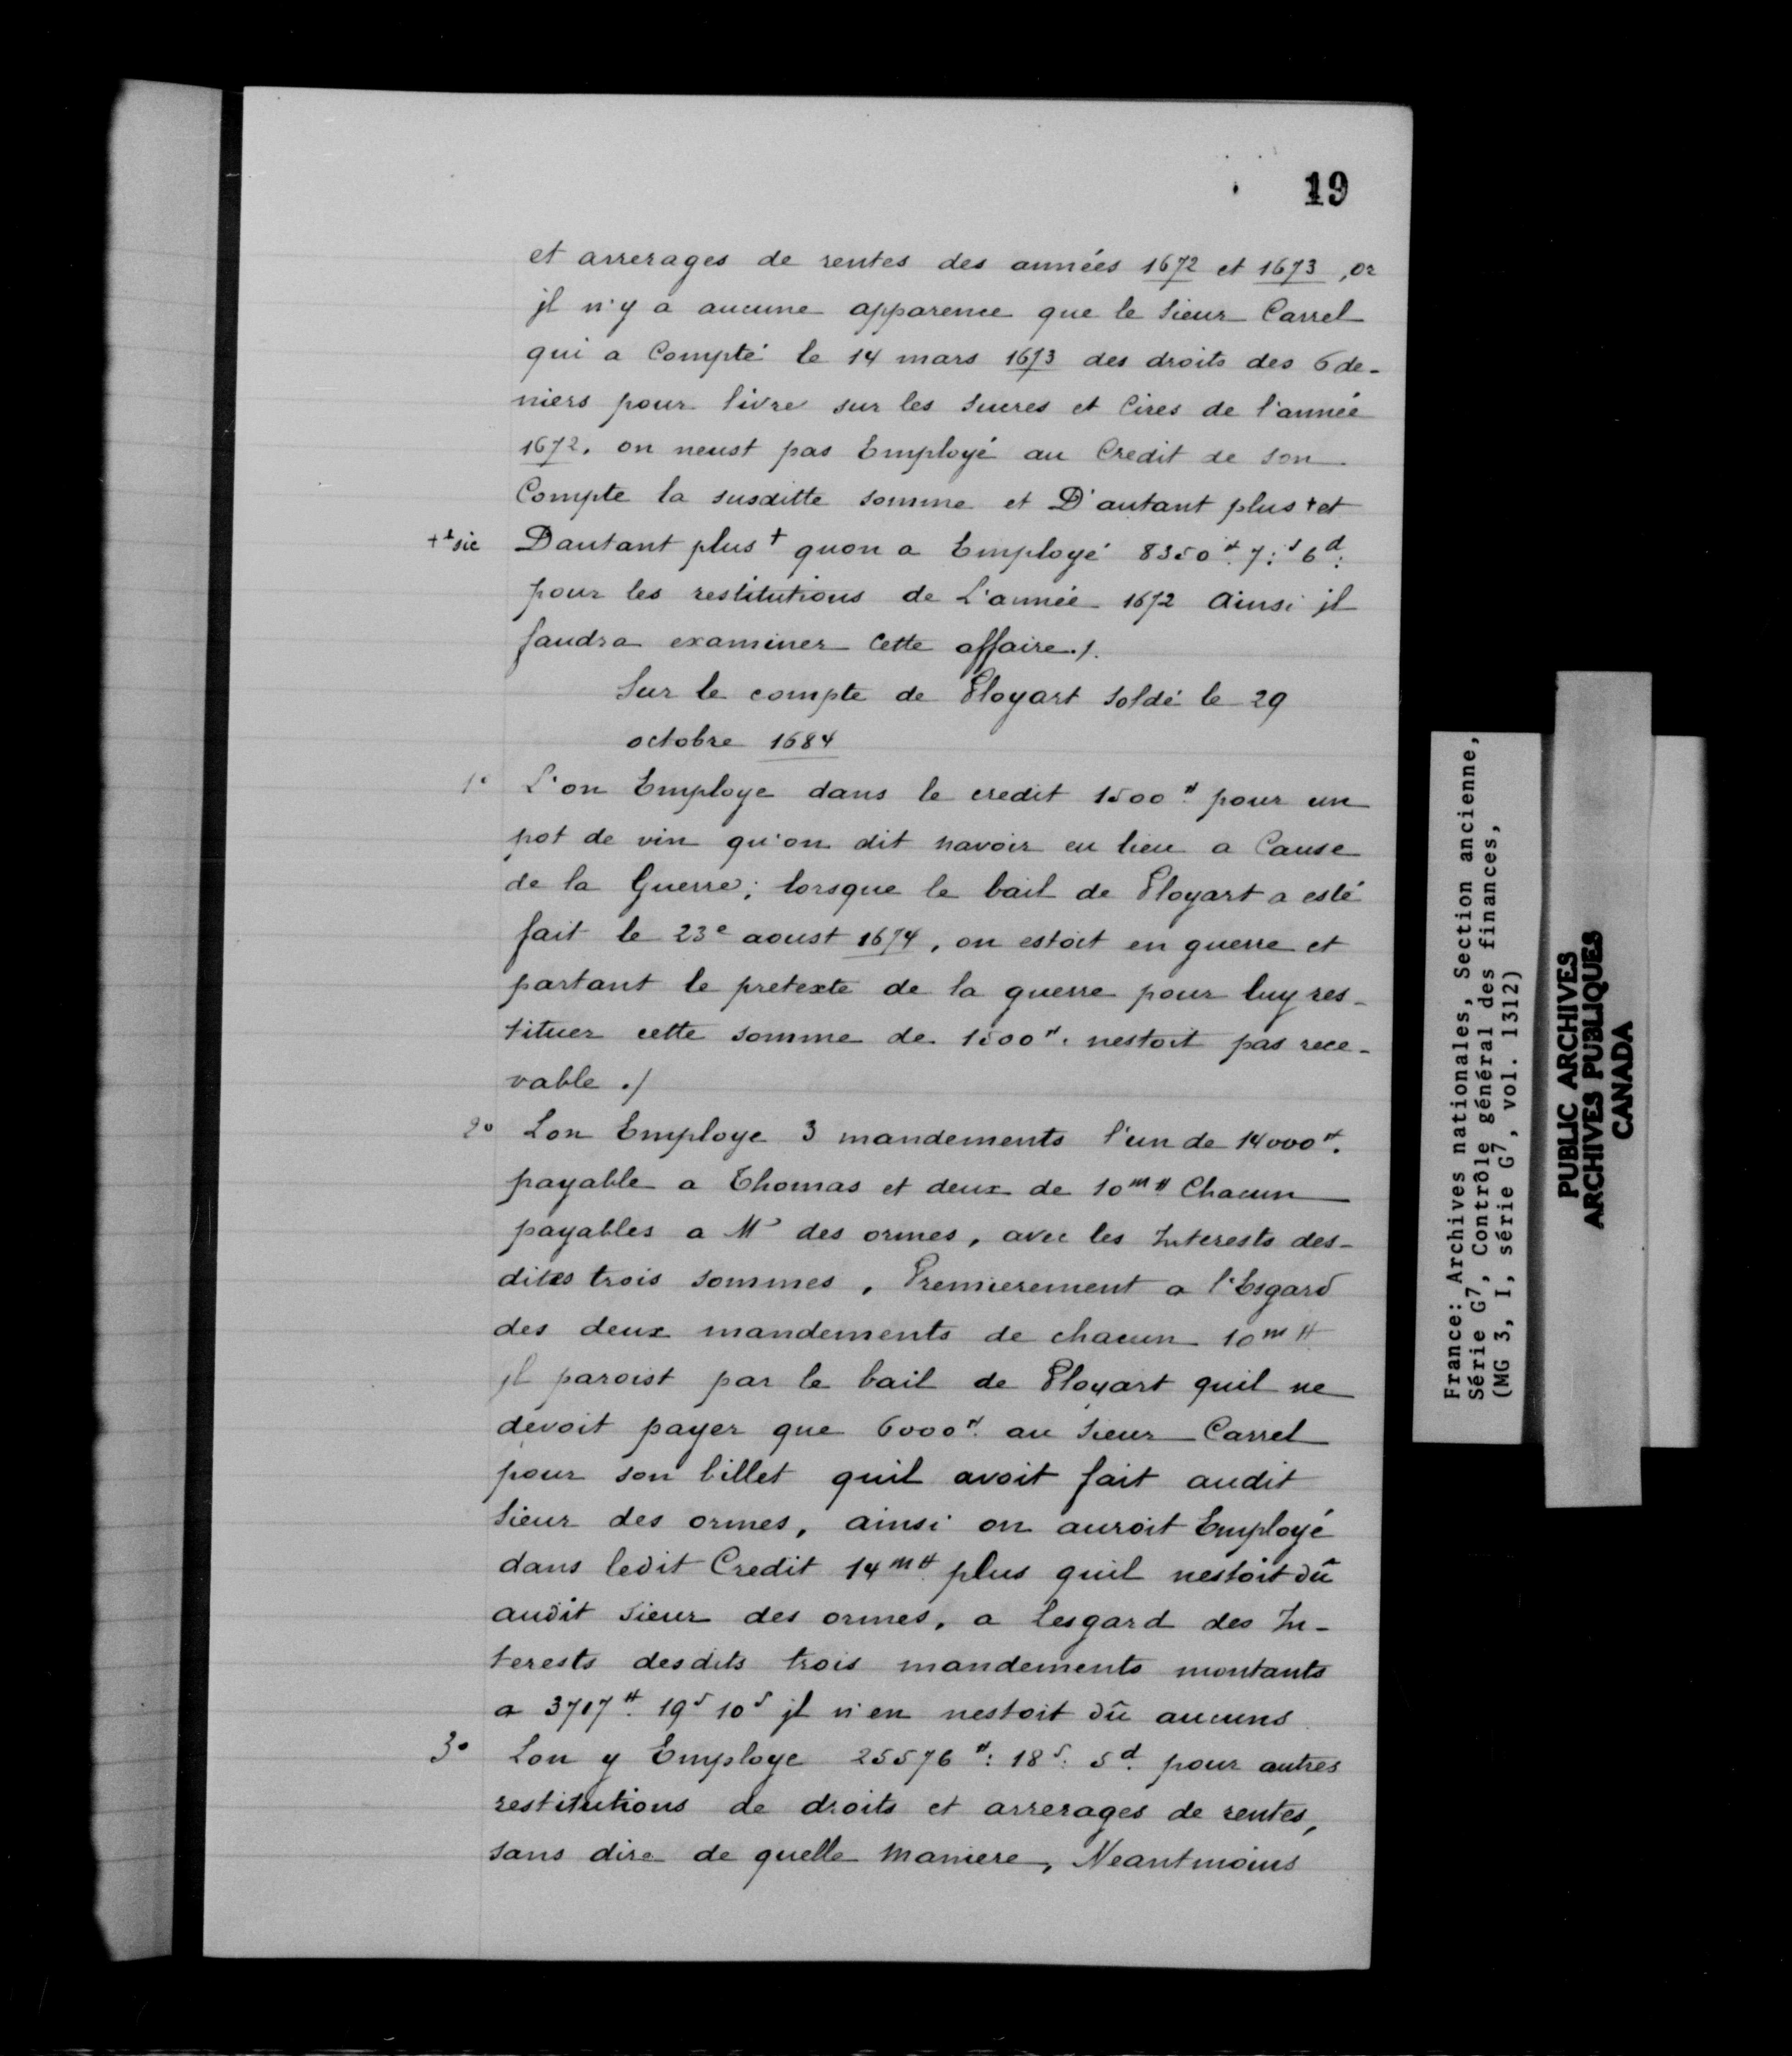 19
et arrerages de rentes des années 1672 et 1673, or
jl n'y a aucune apparence que le Sieur Carrel
qui a Compté le 14 mars 1673 des droits des 6 de-
niers pour livre sur les Sucres et Cires de l'année
1672. on neust pas Employé au Credit de son
Compte la susditte somme et D'autant plus + et
++ sic Dautant plus + quon a Employé 8350 ₶. 7: s 6 d:
pour les restitutions de L'année 1672 Ainsi jl
faudra examiner Cette affaire./.
Sur le compte de Ployart Soldé le 29
octobre 1684
1° L'on Employe dans le credit 1500 ₶. pour un
pot de vin qu'on dit navoir eu lieu a Cause
de la Guerre; lorsque le bail de Ployart a esté
fait le 23e aoust 1674, on estoit en guerre et
partant le pretexte de la guerre pour luy res-
tituer cette somme de 1500 ₶. nestoit pas rece-
vable ./
2° Lon Employe 3 mandements l'un de 14000 ₶.
payable a Thomas et deux de 10 m ₶ Chacun
payables a Mr des ormes, avec les Interests des-
dites trois sommes, Premierement a l'Esgard
des deux mandements de chacun 10 m ₶
jl paroist par le bail de Ployart quil ne
devoit payer que 6000 ₶. au Sieur Carrel
pour son billet quil avoit fait audit
Sieur des ormes, ainsi on auroit Employé
dans ledit Credit 14 m ₶ plus quil nestoit dû
audit Sieur des ormes, a Lesgard des In-
terests desdits trois mandements montants
a 3707 ₶. 19 s 10 s jl n'en nestoit dû aucuns
3° Lon y Employe 25576 ₶: 18 s. 5 d. pour autres
restitutions de droits et arrerages de rentes,
sans dire de quelle maniere, Neantmoins
France: Archives nationales, Section ancienne,
Série G7, Contrôle général des finances,
(MG 3, I, série G7, vol. 1312)
PUBLIC ARCHIVES
ARCHIVES PUBLIQUES
CANADA